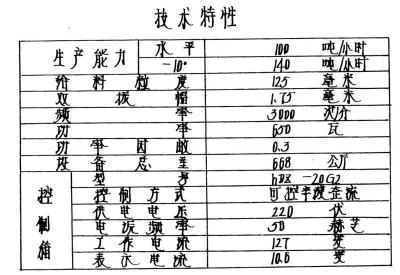 技术特性
生产能力 水平 100 吨/小时
-10° 140 吨/小时
给料粒度 125 毫米
双振幅 1.75 毫米
频率 3000 次/分
功率 650 瓦
功率因数 0.3
设备总重 668 公斤
控制箱 型号 -20G2
控制方式 可控半波歪流
供电电压 220 伏
电源频率 50 赫芝
工作电流 127 安
表示电流 10.0 安